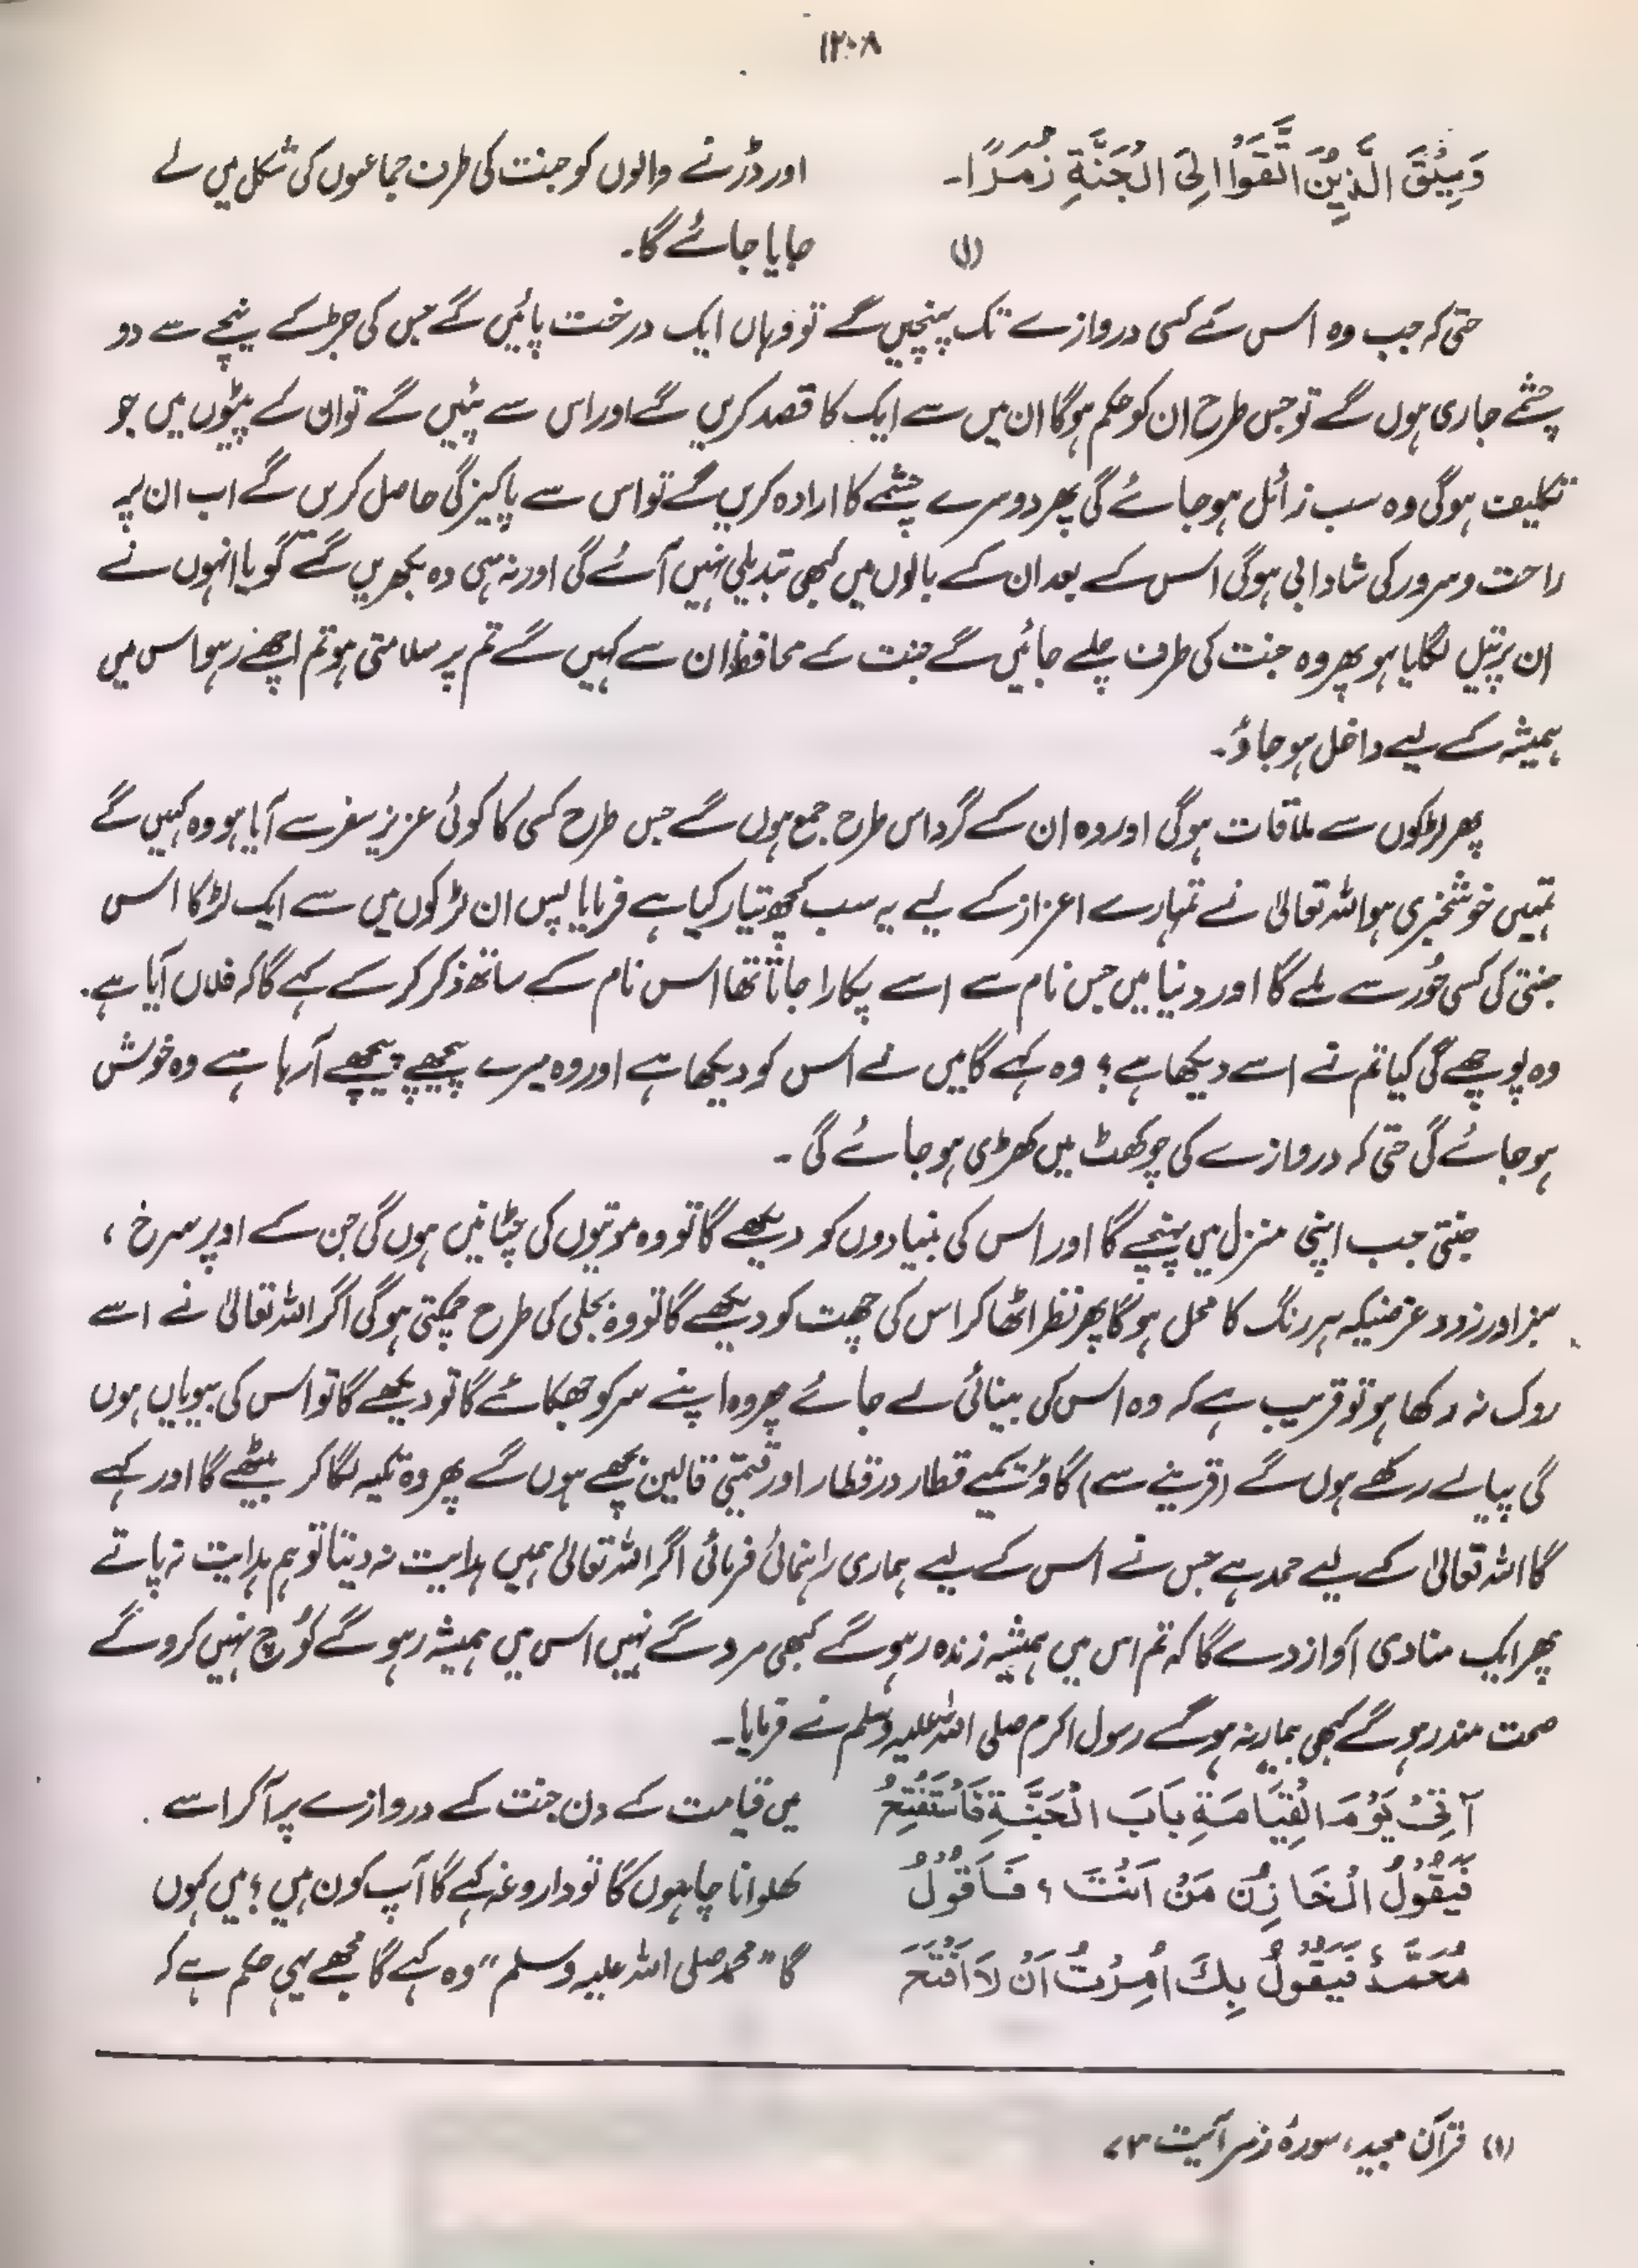 ۱۲۰۸
وَسِيْقَ الَّذِيْنَ اتَّقَوْا اِلَى الْجَنَّةِ زُمَرًا۔ اور ڈرنے والوں کو جنت کی طرف جماعتوں کی شکل میں لے
(۱) جایا جائے گا۔
حتیٰ کہ جب وہ اس کے کسی دروازے تک پہنچیں گے تو وہاں ایک درخت پائیں گے جس کی جڑ کے نیچے سے دو
چشمے جاری ہوں گے تو جس طرح ان کو حکم ہوگا ان میں سے ایک کا قصد کریں گے اور اس سے پئیں گے تو ان کے پیٹوں میں جو
تکلیف ہوگی وہ سب زائل ہو جائے گی پھر دوسرے چشمے کا ارادہ کریں گے تو اس سے پاکیزگی حاصل کریں گے اب ان پر
راحت و سرور کی شادابی ہوگی اس کے بعد ان کے بالوں میں کبھی تبدیلی نہیں آئے گی اور نہ ہی وہ بکھریں گے گویا انہوں نے
ان پر تیل لگایا ہو پھر وہ جنت کی طرف چلے جائیں گے جنت کے محافظ ان سے کہیں گے تم پر سلامتی ہو تم اچھے رہو اس میں
ہمیشہ کے لیے داخل ہو جاؤ۔
پھر لڑکوں سے ملاقات ہوگی اور وہ ان کے گرد اس طرح جمع ہوں گے جس طرح کسی کا کوئی عزیز سفر سے آیا ہو وہ کہیں گے
تمہیں خوشخبری ہو اللہ تعالیٰ نے تمہارے اعزاز کے لیے یہ سب کچھ تیار کیا ہے فرمایا پس ان لڑکوں میں سے ایک لڑکا اس
جنتی کی کسی حُور سے ملے گا اور دنیا میں جس نام سے اسے پکارا جاتا تھا اس نام کے ساتھ ذکر کر کے کہے گا کہ فلاں آیا ہے۔
وہ پوچھے گی کیا تم نے اسے دیکھا ہے؟ وہ کہے گا میں نے اس کو دیکھا ہے اور وہ میرے پیچھے پیچھے آرہا ہے وہ خوش
ہو جائے گی حتیٰ کہ دروازے کی چوکھٹ میں کھڑی ہو جائے گی۔
جنتی جب اپنی منزل میں پہنچے گا اور اس کی بنیادوں کو دیکھے گا تو وہ موتیوں کی چٹانیں ہوں گی جن کے اوپر سرخ،
سبز اور زرد غرضیکہ ہر رنگ کا محل ہوگا پھر نظر اٹھا کر اس کی چھت کو دیکھے گا تو وہ بجلی کی طرح چمکتی ہوگی اگر اللہ تعالیٰ نے اسے
روک نہ رکھا ہو تو قریب ہے کہ وہ اس کی بینائی لے جائے پھر وہ اپنے سر کو جھکائے گا تو دیکھے گا تو اس کی بیویاں ہوں
گی پیالے رکھے ہوں گے (قرینے سے) گاؤ تکیے قطار در قطار اور قیمتی قالین بچھے ہوں گے پھر وہ تکیہ لگا کر بیٹھے گا اور کہے
گا اللہ تعالیٰ کے لیے حمد ہے جس نے اس کے لیے ہماری راہنمائی فرمائی اگر اللہ تعالیٰ ہمیں ہدایت نہ دیتا تو ہم ہدایت نہ پاتے
پھر ایک منادی آواز دے گا کہ تم اس میں ہمیشہ زندہ رہو گے کبھی مرو گے نہیں اس میں ہمیشہ رہو گے کُوچ نہیں کرو گے
صحت مند رہو گے کبھی بیمار نہ ہو گے رسول اکرم صلی اللہ علیہ وسلم نے فرمایا۔
آتِیْ يَوْمَ الْقِيَامَةِ بَابَ الْجَنَّةِ فَاَسْتَفْتِحُ میں قیامت کے دن جنت کے دروازے پر آکر اسے
فَيَقُوْلُ الْخَازِنُ مَنْ اَنْتَ؟ فَاَقُوْلُ کھلوانا چاہوں گا تو داروغہ کہے گا آپ کون ہیں؟ میں کہوں
مُحَمَّدٌ فَيَقُوْلُ بِكَ اُمِرْتُ اَنْ لَا اَفْتَحَ گا "محمد صلی اللہ علیہ وسلم" وہ کہے گا مجھے یہی حکم ہے کہ
(۱) قرآن مجید، سورۂ زمر آیت ۷۳